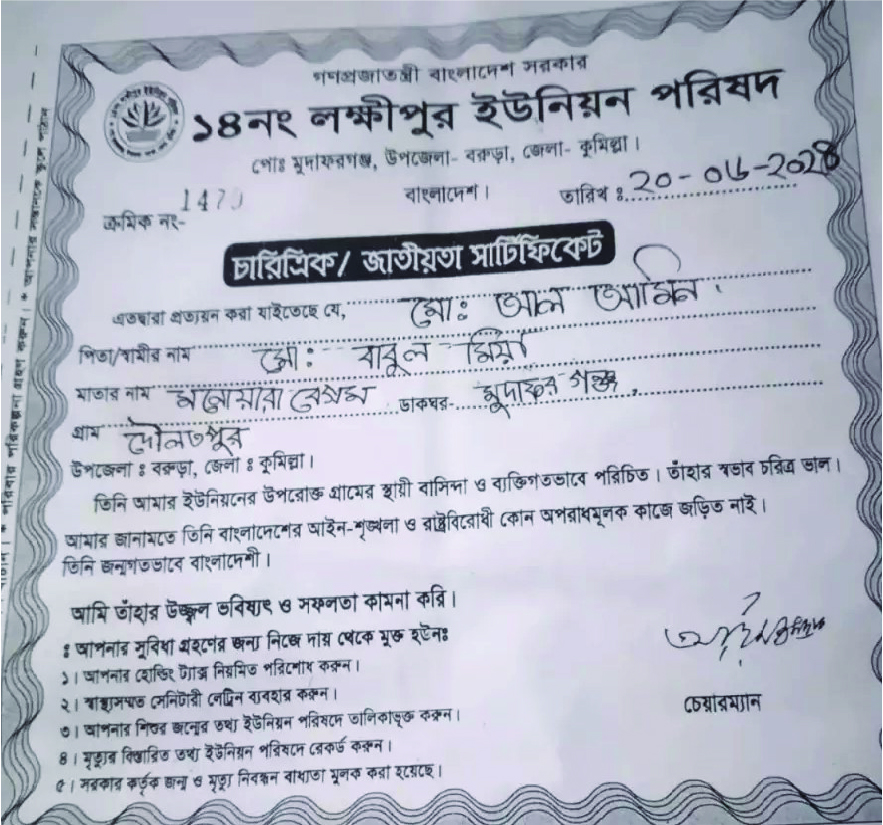 গণপ্রজাতন্ত্রী বাংলাদেশ সরকার
১৪নং লক্ষীপুর ইউনিয়ন পরিষদ
পোঃ মুদাফরগঞ্জ, উপজেলা- বরুড়া, জেলা- কুমিল্লা।
বাংলাদেশ।
তারিখ ঃ 20-06-202
ক্রমিক নং- 147
চারিত্রিক/ জাতীয়তা সার্টিফিকেট
এতদ্বারা প্রত্যয়ন করা যাইতেছে যে, মোঃ আল আমিন।
পিতা/স্বামীর নাম মো: বাবুল মিয়া
মাতার নাম মনোয়ারা বেগম ডাকঘর- মুদাফর গঞ্জ,
গ্রাম দৌলতপুর
উপজেলা ঃ বরুড়া, জেলা ঃ কুমিল্লা।
তিনি আমার ইউনিয়নের উপরোক্ত গ্রামের স্থায়ী বাসিন্দা ও ব্যক্তিগতভাবে পরিচিত। তাঁহার স্বভাব চরিত্র ভাল।
আমার জানামতে তিনি বাংলাদেশের আইন-শৃঙ্খলা ও রাষ্ট্রবিরোধী কোন অপরাধমূলক কাজে জড়িত নাই।
তিনি জন্মগতভাবে বাংলাদেশী।
আমি তাঁহার উজ্জ্বল ভবিষ্যৎ ও সফলতা কামনা করি।
ঃ আপনার সুবিধা গ্রহণের জন্য নিজে দায় থেকে মুক্ত হউনঃ
১। আপনার হোল্ডিং ট্যাক্স নিয়মিত পরিশোধ করুন।
২। স্বাস্থ্যসম্মত সেনিটারী লেট্রিন ব্যবহার করুন।
৩। আপনার শিশুর জন্মের তথ্য ইউনিয়ন পরিষদে তালিকাভূক্ত করুন।
৪। মৃত্যুর বিস্তারিত তথ্য ইউনিয়ন পরিষদে রেকর্ড করুন।
৫। সরকার কর্তৃক জন্ম ও মৃত্যু নিবন্ধন বাধ্যতা মূলক করা হয়েছে।
চেয়ারম্যান